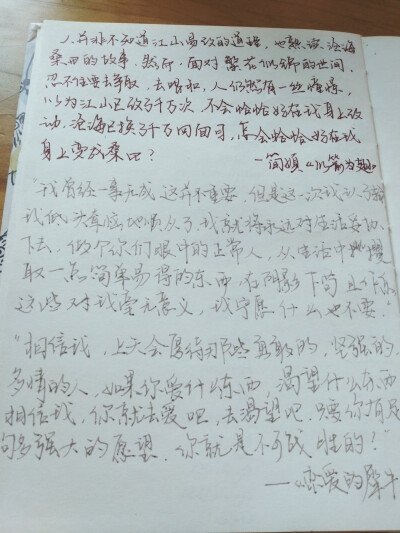 1. 并非不知道江山易改的道理，也熟谈沧海
桑田的故事，然而，面对繁花似锦的世间，
忍不住要去争取，去唱和，人们总有一丝侥幸，
以为江山已改了千万次，不会恰恰好在我身上改
动，沧海已换了千万回面目，怎会恰恰好在我
身上变成桑田？
—简媜《以箭为翅》
"我曾经一事无成，这并不重要，但是这一次我认了输
我低头耷脑地顺从了，我就将永远对生活妥协
下去，做个你们眼中的正常人，从生活中攫
取一点简单易得的东西，在阴影下苟且作乐
这些对我毫无意义，我宁愿什么也不要."
"相信我，上天会厚待那些勇敢的，坚强的，
多情的人，如果你爱什么东西，渴望什么东西
相信我，你就去爱吧，去渴望吧，只要你有足
够多强大的愿望，你就是不可战胜的！"
——《恋爱的犀牛